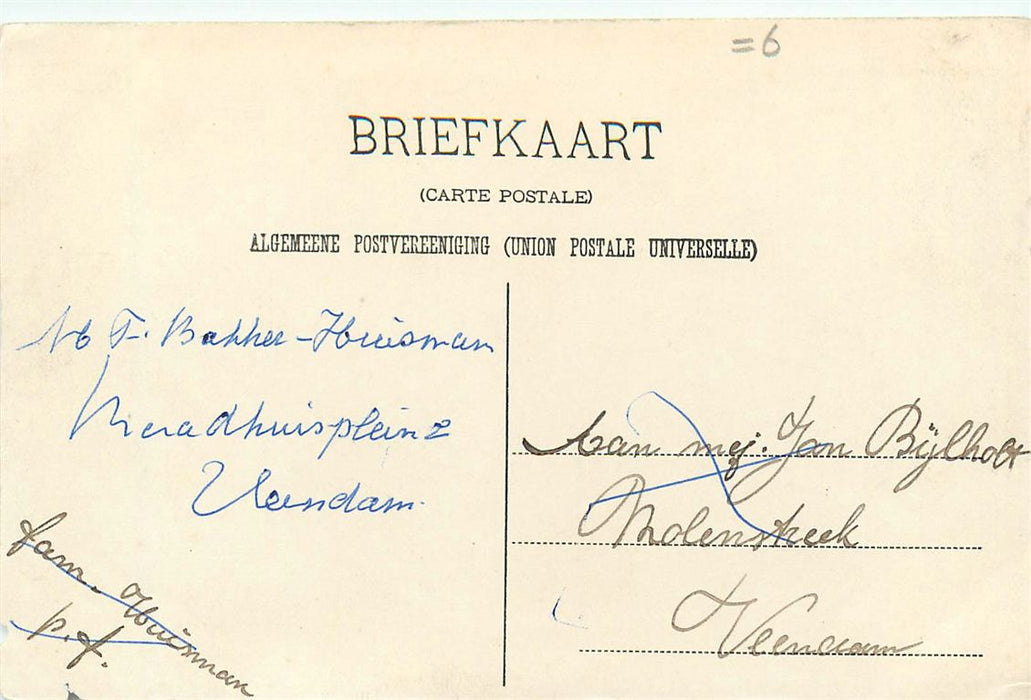 =6
BRIEFKAART
(CARTE POSTALE)
ALGEMEENE POSTVEREENIGING (UNION POSTALE UNIVERSELLE)
F. Bakker-Huisman
Raadhuisplein 2
Veendam.
Fam. Huisman
p.f.
Aan mej. Jan Bijlholt
Molenstreek
Veendam